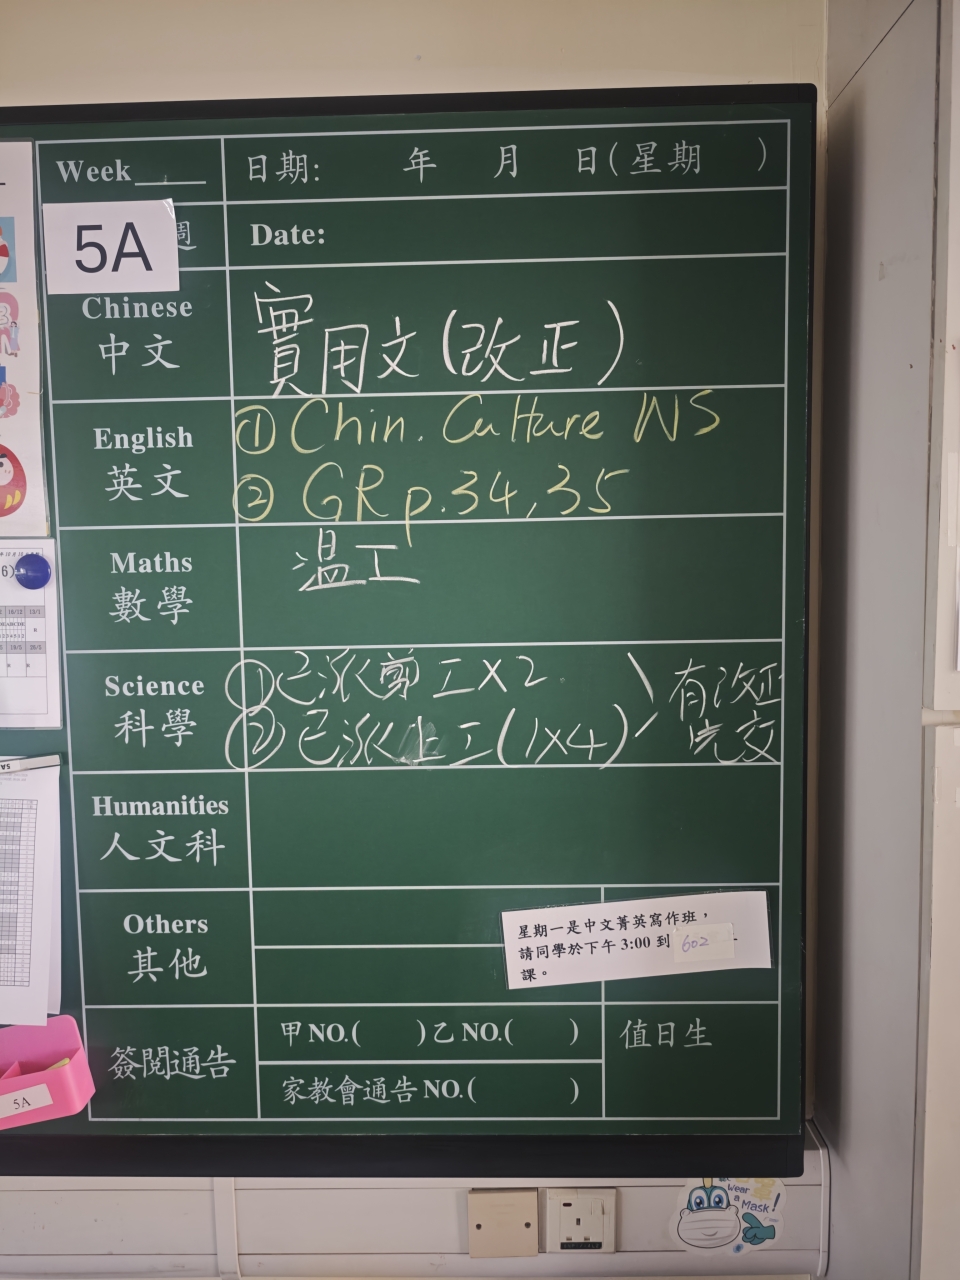 Week
日期: 年 月 日(星期 )
5A
週
Date:
Chinese
中文
實用文(改正)
English
英文
① Chin. Culture WS
② GR p.34,35
Maths
數學
温工
Science
科學
①已派剪工X2
②已派上工(1X4)
有改正
先交
Humanities
人文科
Others
其他
星期一是中文菁英寫作班，
請同學於下午 3:00 到 602
課。
簽閱通告
甲 NO.( )乙 NO.( )
家教會通告 NO.( )
值日生
5A
5A
Wear
a Mask!